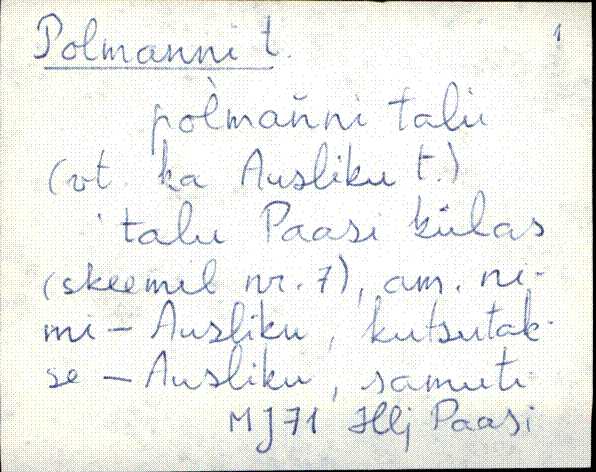 Polmanni t. 1
pòlmanni talu
(vt. ka Ausliku t.)
talu Paasi külas
(skeemil nr. 7), am. ni-
mi - Ausliku, kutsutak-
se - Ausliku, samuti
MJ71 Hlj Paasi